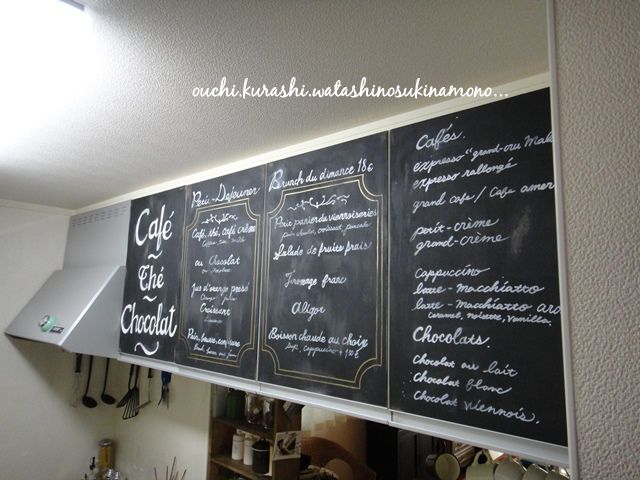 ouchi.kurashi.watashinosukinamono...
Café
Thé
Chocolat
Petit-Dejeuner
Café, thé, café crème
ou Chocolat
Jus d'orange pressé
Croissant
Pain, beurre, confiture
Brunch du dimance 18€
Petit panier du viennoiseries
Salade de fruits frais
Fromage franc
Aligor
Boisson chaude au choix
Cafés.
expresso "grand-cru Mala
expresso rallongé
grand cafe / Cafe amer
petit-crème
grand-crème
Cappuccino
latte-macchiatto
latte-macchiatto aro
caramel, noisette, vanilla,
Chocolats.
chocolat au lait
chocolat blanc
chocolat viennois.